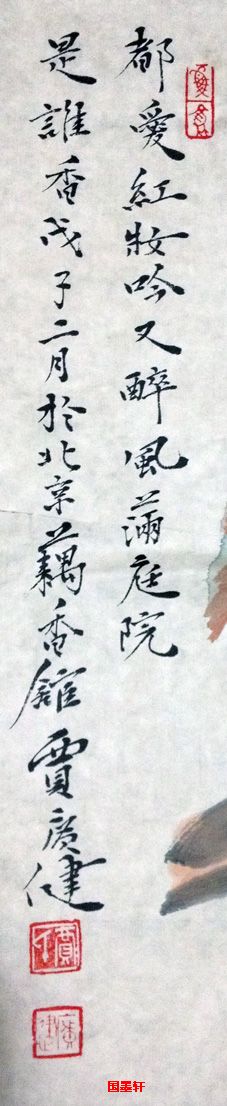 都愛紅妝吟又醉風蒲庭院
是誰香戊子二月於北京藕香館賈廣健
國墨轩